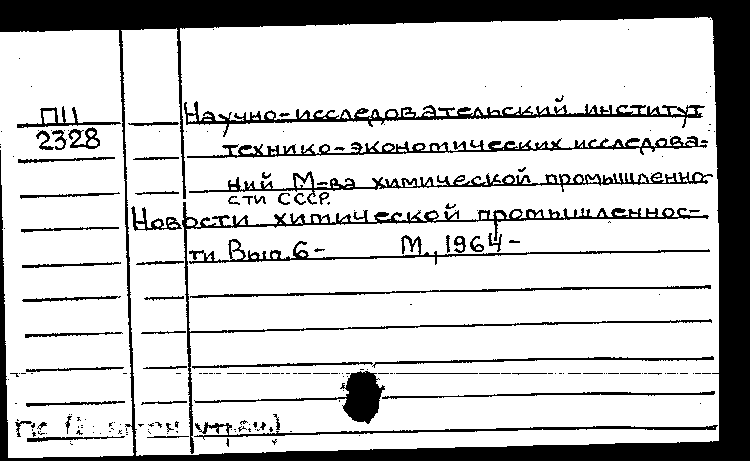 П11
2328
Научно-исследовательский институт
технико-экономических исследова-
ний М-ва химической промышленно-
сти СССР.
Новости химической промышленнос-
ти Вып.6- М., 1964-